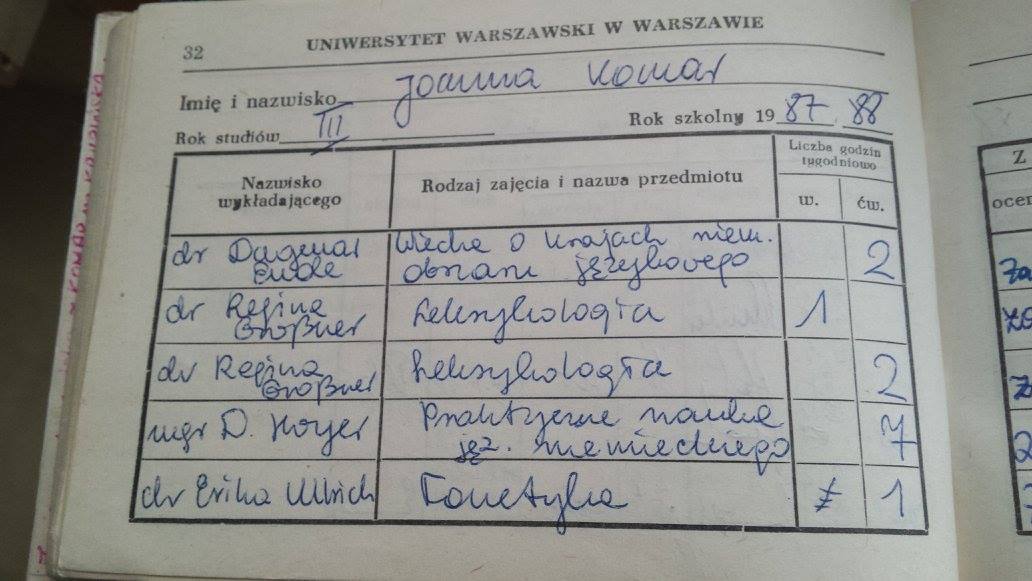 32 UNIWERSYTET WARSZAWSKI W WARSZAWIE
Imię i nazwisko Joanna Komar
Rok studiów III Rok szkolny 19 87 88
Nazwisko wykładającego
Rodzaj zajęcia i nazwa przedmiotu
Liczba godzin tygodniowo
w. ćw.
dr Dagmar Wiedza o krajach niem.
Ende obszaru językowego 2
dr Regina Leksykologia 1
Großner
dr Regina Leksykologia 2
Großner
mgr D. Hoyer Praktyczna nauka 7
jęz. niemieckiego
dr Erika Ullrich Fonetyka 1
Z
ocen